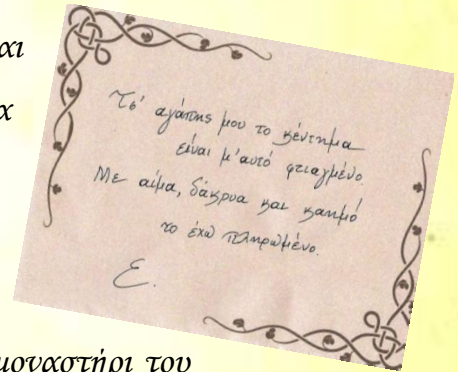 αι
χ
Τσ' αγάπης μου το κέντημα
είναι μ' αυτό φτιαγμένο.
Με αίμα, δάκρυα και καημό
το έχω πληρωμένο.
Ε.
μοναστήρι του